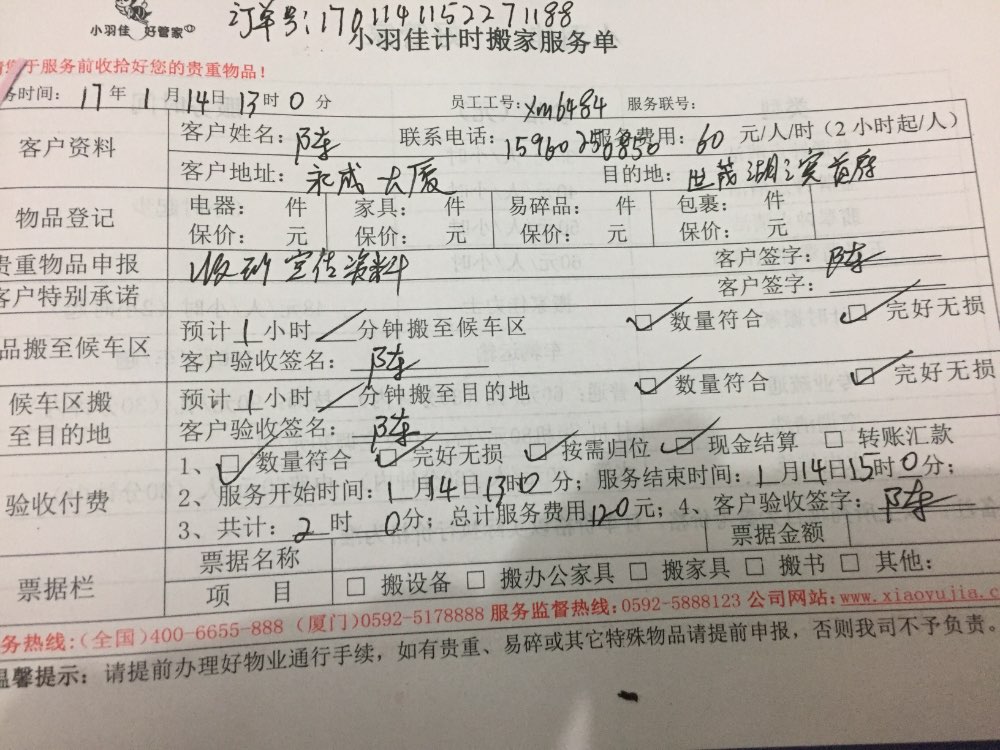 订单号:1701141152271188
小羽佳 好管家
小羽佳计时搬家服务单
请您于服务前收拾好您的贵重物品！
务时间: 17年1月14日13时0分 员工工号: xm6484 服务联号:
客户资料 客户姓名: 陈 联系电话: 服务费用: 60 元/人/时（2小时起/人）
客户地址: 永成大厦 目的地: 世茂湖滨首府
物品登记 电器: 件 家具: 件 易碎品: 件 包裹: 件
保价: 元 保价: 元 保价: 元 保价: 元
贵重物品申报 收到宣传资料 客户签字: 陈
客户特别承诺 客户签字:
品搬至候车区 预计1小时/分钟搬至候车区 ☑ 数量符合 ☑ 完好无损
客户验收签名: 陈
候车区搬至目的地 预计1小时/分钟搬至目的地 ☑ 数量符合 ☑ 完好无损
客户验收签名: 陈
验收付费 1、☑ 数量符合 ☑ 完好无损 ☑ 按需归位 ☑ 现金结算 □ 转账汇款
2、服务开始时间: 1月14日13时0分；服务结束时间: 1月14日15时0分；
3、共计: 2时 0分；总计服务费用120元；4、客户验收签字: 陈
票据栏 票据名称 票据金额
项 目 □ 搬设备 □ 搬办公家具 □ 搬家具 □ 搬书 □ 其他:
务热线:(全国)400-6655-888 (厦门)0592-5178888 服务监督热线:0592-5888123 公司网站:www.xiaoyujia.c
温馨提示: 请提前办理好物业通行手续，如有贵重、易碎或其它特殊物品请提前申报，否则我司不予负责。